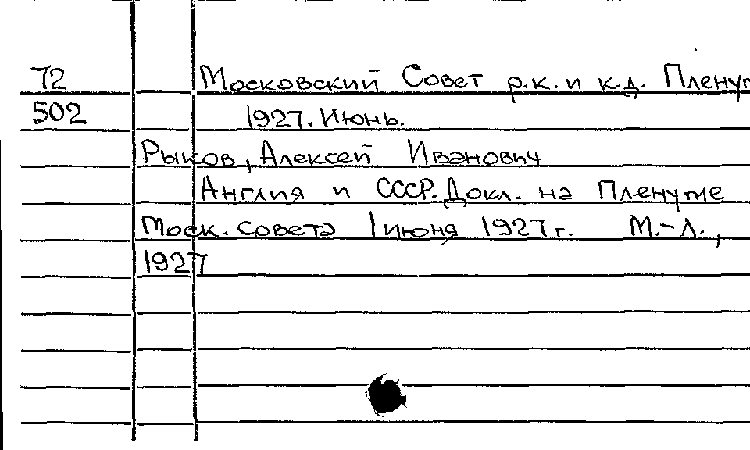 72 Московский Совет р.к. и к.д. Пленум
502 1927. Июнь.
Рыков, Алексей Иванович
Англия и СССР. Докл. на Пленуме
Моск. совета 1 июня 1927 г. М.-Л.,
1927